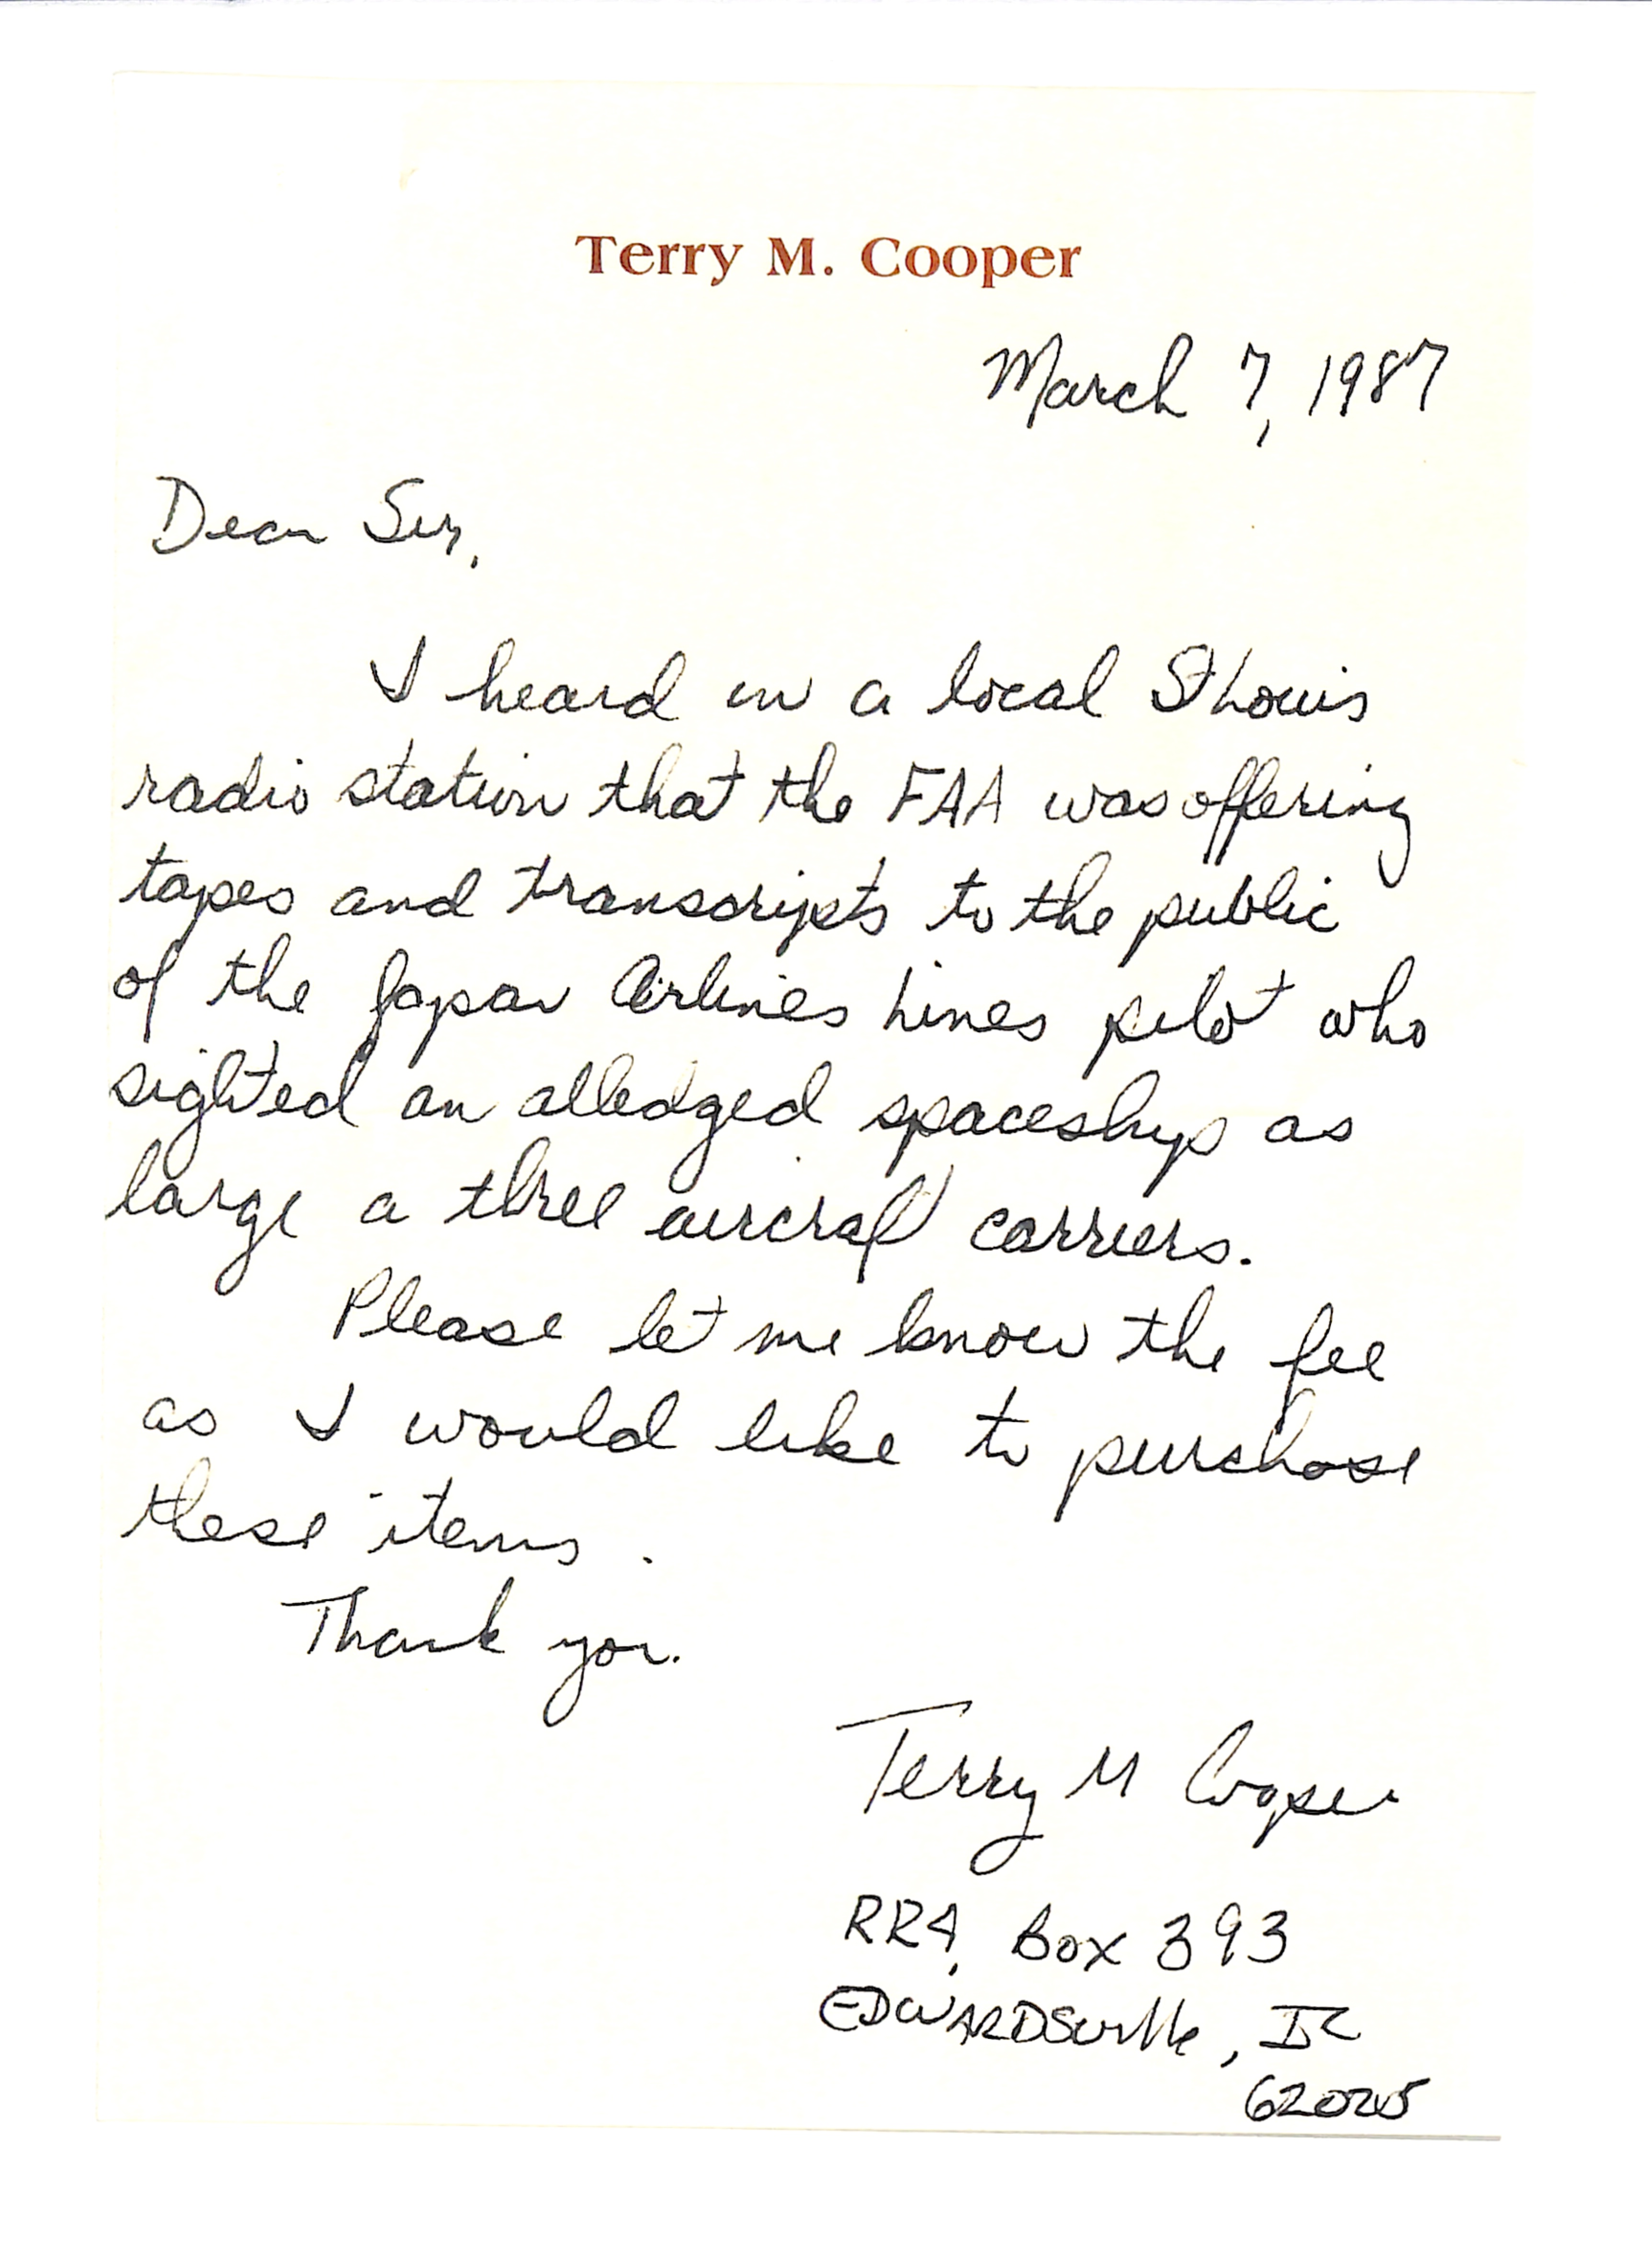 Terry M. Cooper
March 7, 1987
Dear Sir,
I heard on a local St Louis
radio station that the FAA was offering
tapes and transcripts to the public
of the Japan Airlines Lines pilot who
sighted an alledged spaceship as
large a three aircraft carriers.
Please let me know the fee
as I would like to purchase
these items.
Thank you.
Terry M Cooper
RR4, Box 393
EDWARDSville, IL
62025